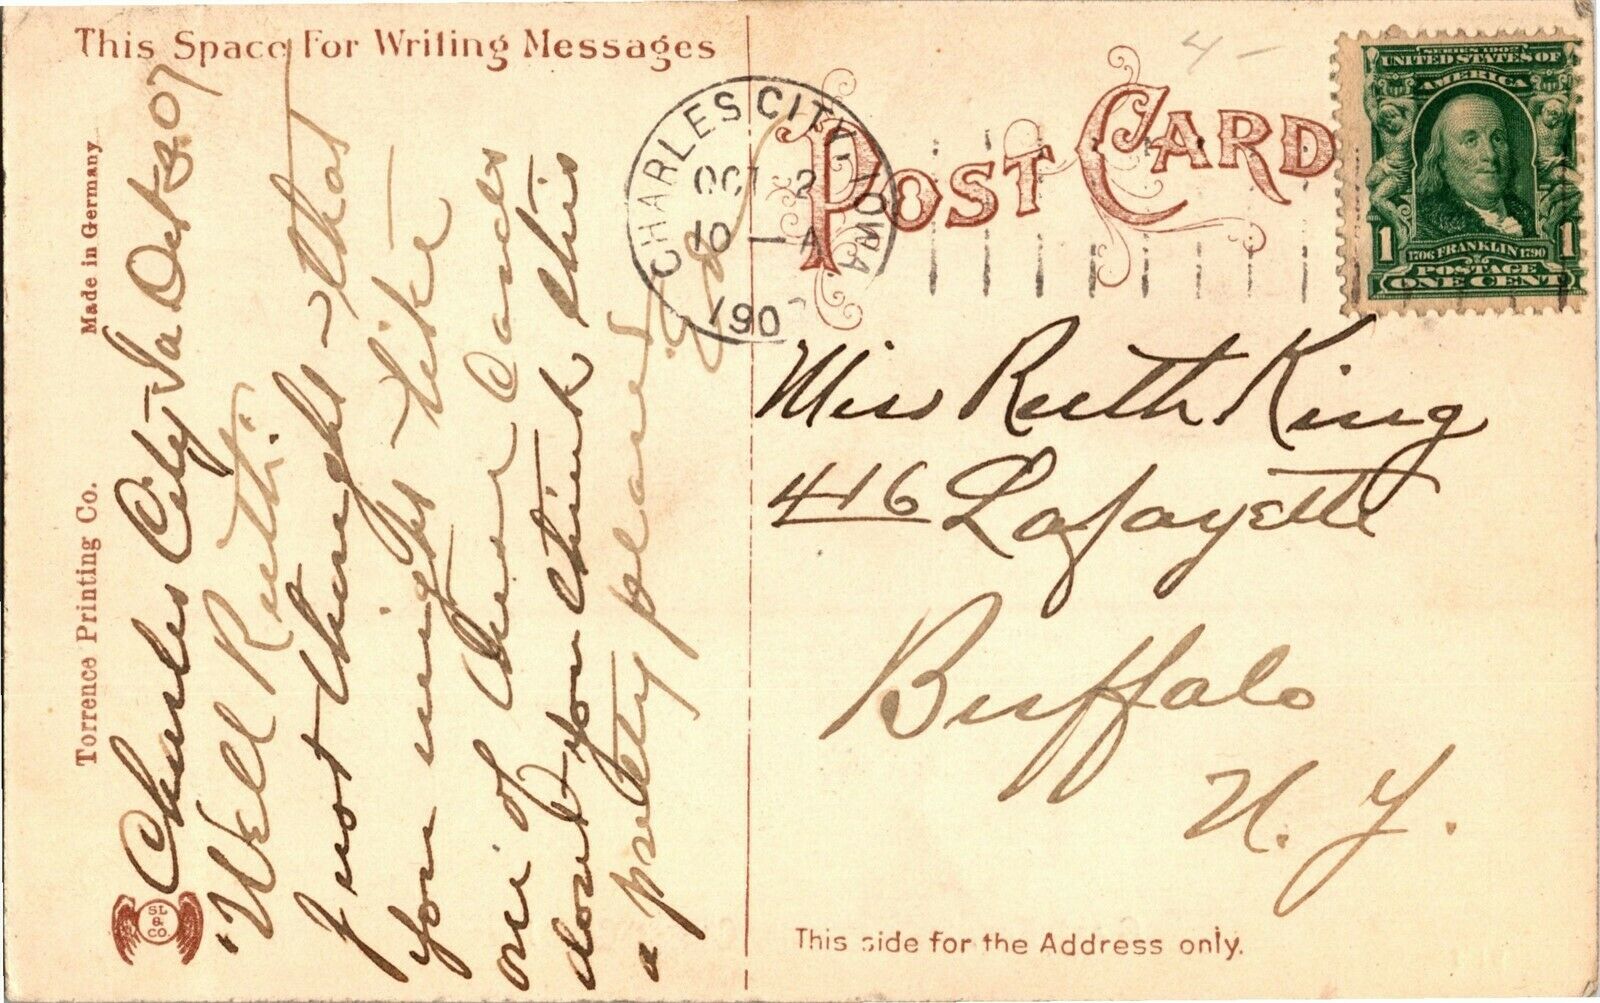 This Space For Writing Messages
POST CARD
SERIES 1902
UNITED STATES OF
AMERICA
1 1706 FRANKLIN 1790 1
POSTAGE
ONE CENT
CHARLES CITY, IOWA
OCT 2
10 — A
190
4 —
Made in Germany.
Torrence Printing Co.
SL
&
CO.
Charles City Ia Oct 07
"Well Ruth:
I just thought – that
you might like –
one of these cards
dont you think this
a pretty place?
Miss Ruth King
416 Lafayette
Buffalo
N. Y.
This side for the Address only.